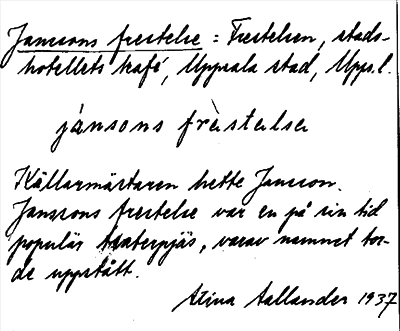 Janssons frestelse = Frestelsen, stads-
hotellets kafé, Uppsala stad, Upps.l.
jánsons frèstelse
Källarmästaren hette Jansson.
Janssons frestelse var en på sin tid
populär teaterpjäs, varav namnet tor-
de uppstått.
Stina Aallander 1937